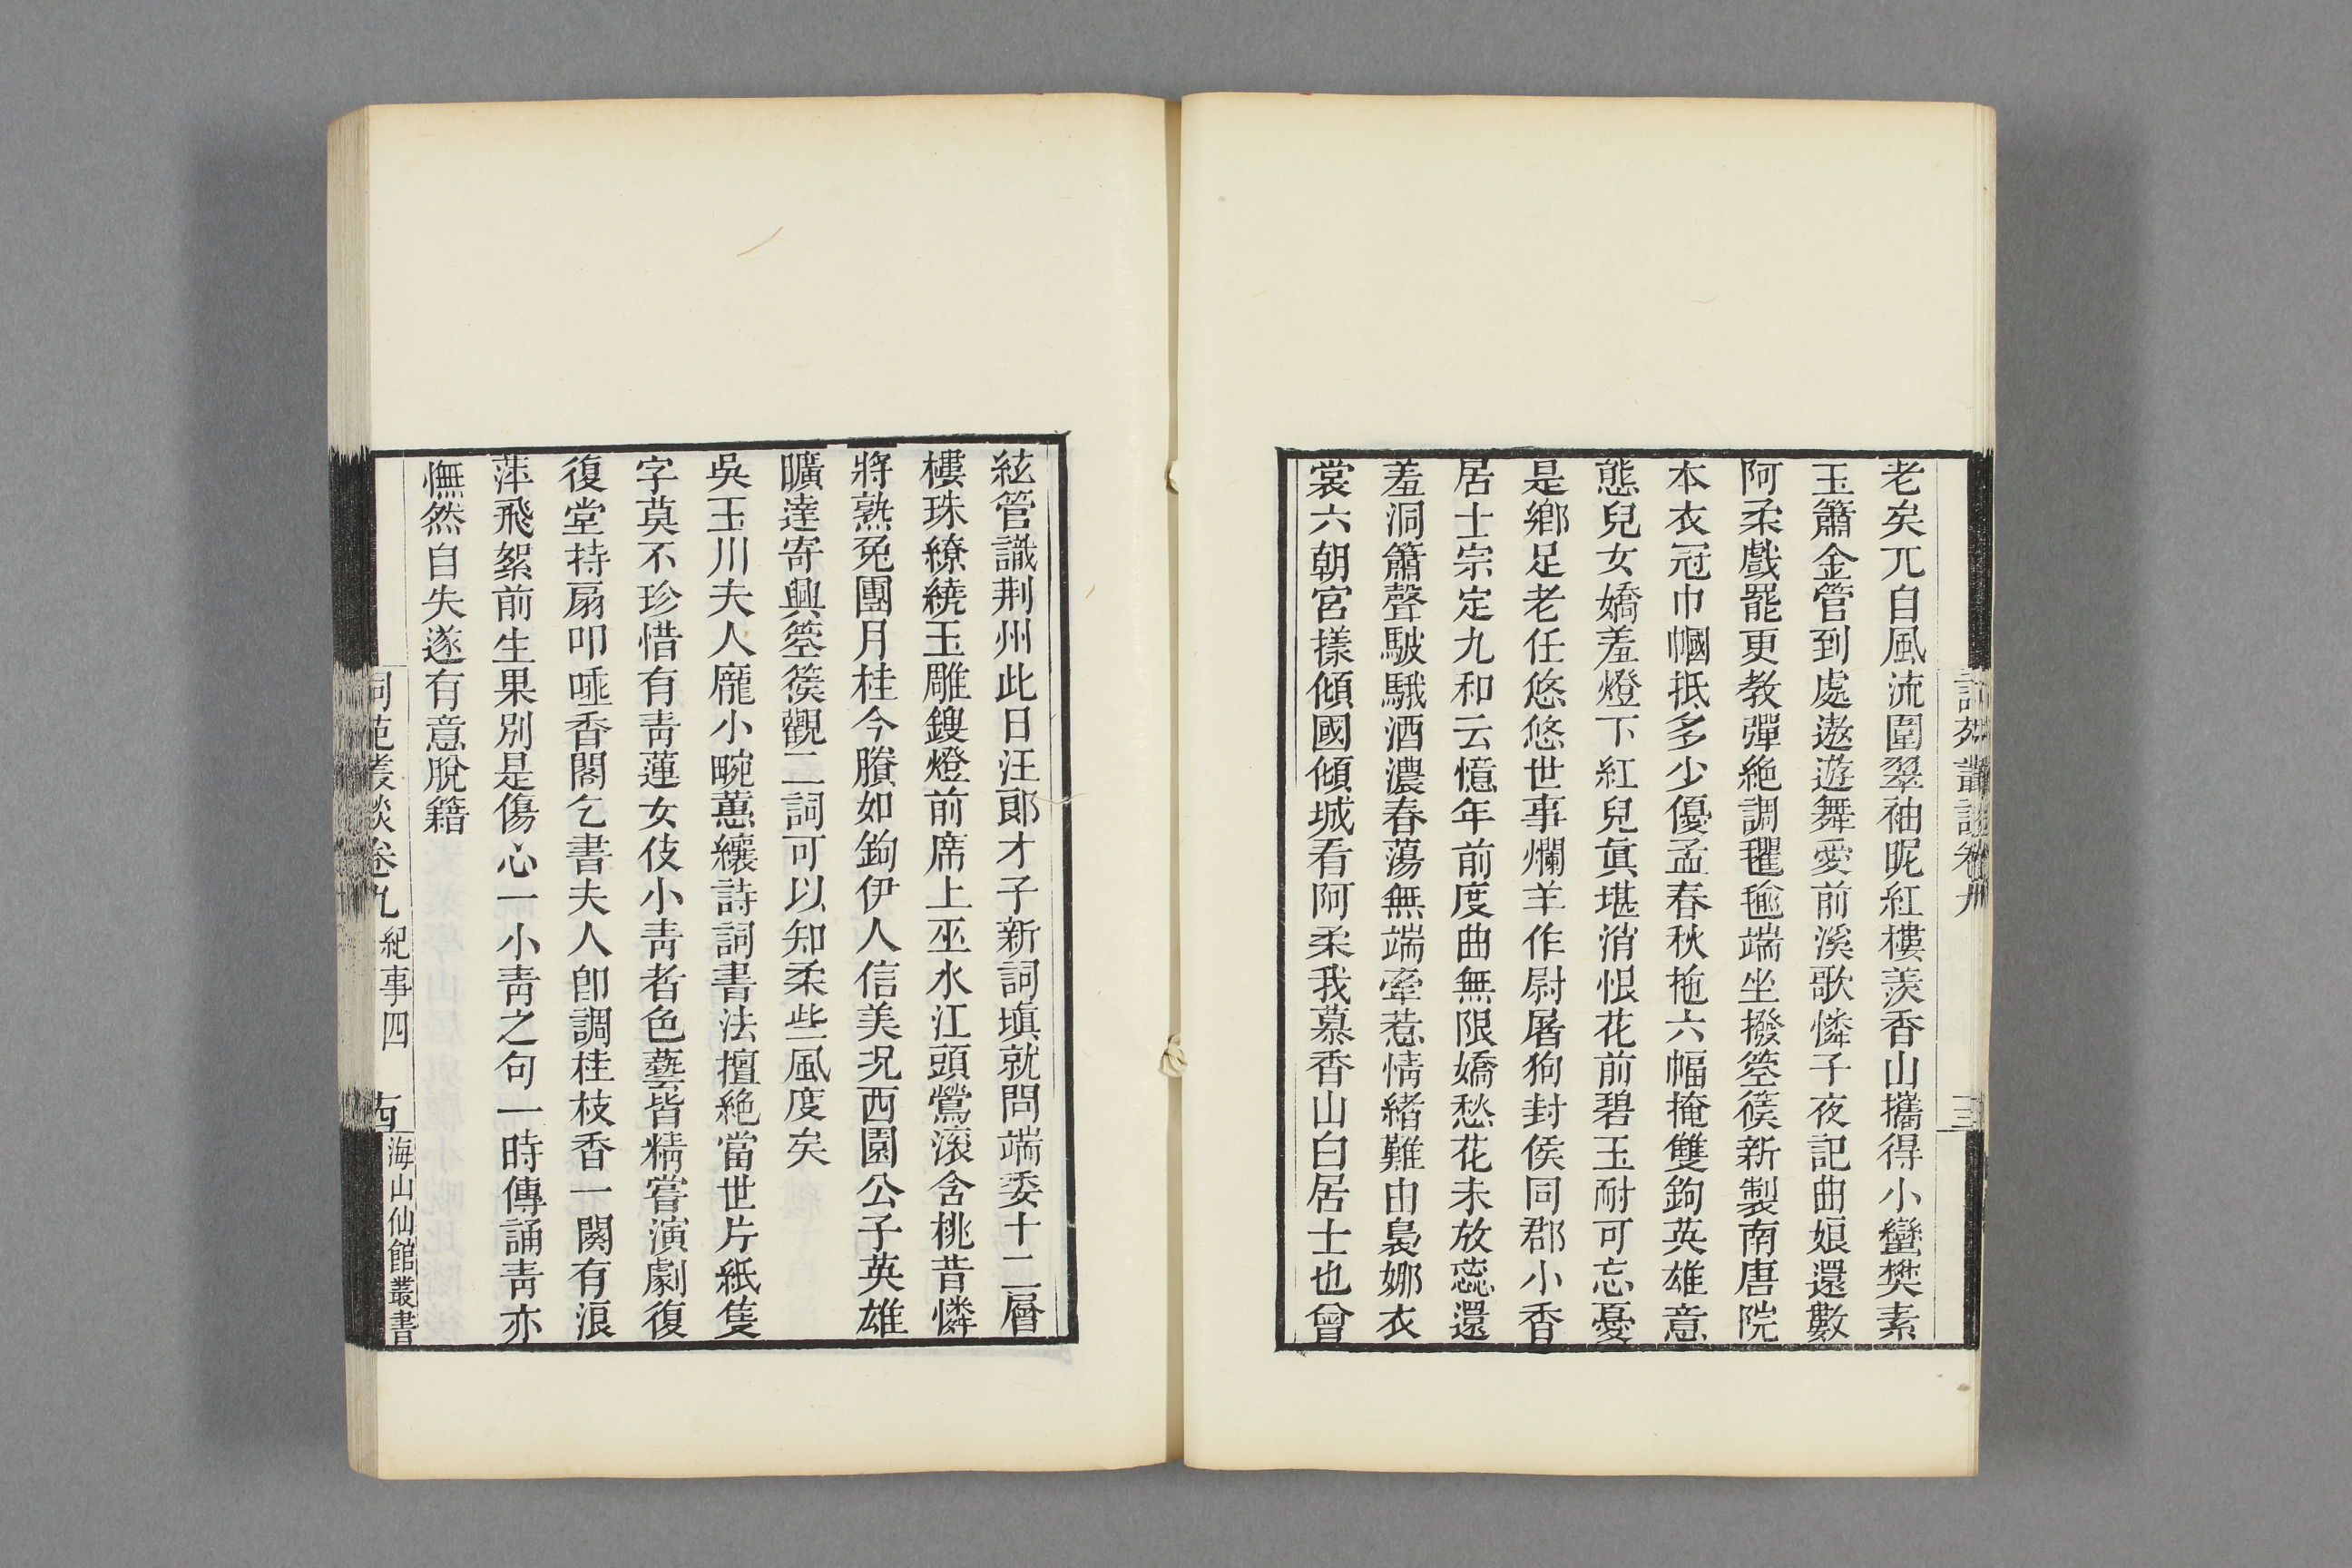 老矣兀自風流圍翠袖昵紅樓羨香山攜得小蠻樊素
玉簫金管到處遨遊舞愛前溪歌憐子夜記曲娘還數
阿柔戲罷更教彈絕調氍毹端坐撥箜篌新製南唐院
本衣冠巾幗抵多少優孟春秋拖六幅掩雙鉤英雄意
態兒女嬌羞燈下紅兒眞堪消恨花前碧玉耐可忘憂
是鄉足老任悠悠世事爛羊作尉屠狗封侯同郡小香
居士宗定九和云憶年前度曲無限嬌愁花未放蕊還
羞洞簫聲駊騀酒濃春蕩無端牽惹情緒難由裊娜衣
裳六朝宮㨾傾國傾城看阿柔我慕香山白居士也曾
絃管識荆州此日汪郎才子新詞塡就問端委十二層
樓珠繚繞玉雕鎪燈前席上巫水江頭鶯滚含桃昔憐
將熟兔團月桂今賸如鉤伊人信美况西園公子英雄
曠達寄興箜篌觀二詞可以知柔些風度矣
吳玉川夫人龐小畹蕙纕詩詞書法擅絕當世片紙隻
字莫不珍惜有靑蓮女伎小靑者色藝皆精嘗演劇復
復堂持扇叩唾香閣乞書夫人卽調桂枝香一闋有浪
萍飛絮前生果別是傷心一小靑之句一時傳誦靑亦
憮然自失遂有意脫籍
詞苑叢談卷九 紀事四
海山仙館叢書